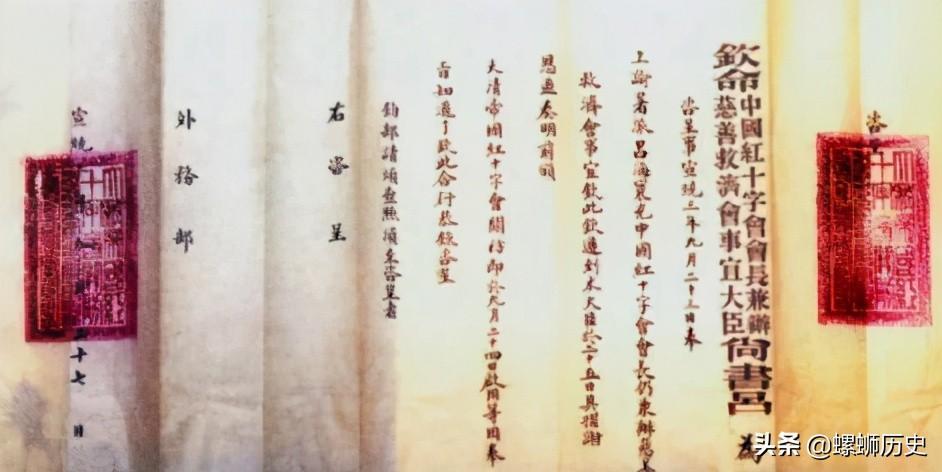 咨
欽命中國紅十字會會長兼辦慈善救濟會事宜大臣尚書呂 為
咨呈事宣統三年九月二十三日奉
上諭著派呂海寰充中國紅十字會會長仍兼辦慈善
救濟會事宜欽此欽遵到本大臣於二十五日具摺謝
恩並奏明前頒
大清帝國紅十字會關防即於九月二十四日啟用等因奉
旨知道了欽此合行恭錄咨呈
鈞部請煩查照須至咨呈者
右咨呈
外務部
宣統 十七日
头条 @螺蛳历史